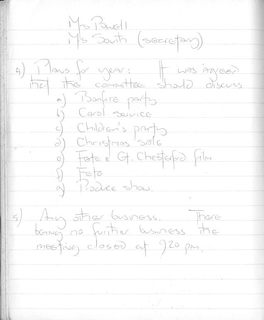 Mrs Powell
Ms South (secretary)
4) Plans for year: It was agreed
that the committee should discuss
a) Bonfire party
b) Carol service
c) Children's party
d) Christmas
e) Fete & Gt. Chesterford film
f) Fete
g) Produce show.
5) Any other business. There
being no further business the
meeting closed at 9.20 pm.